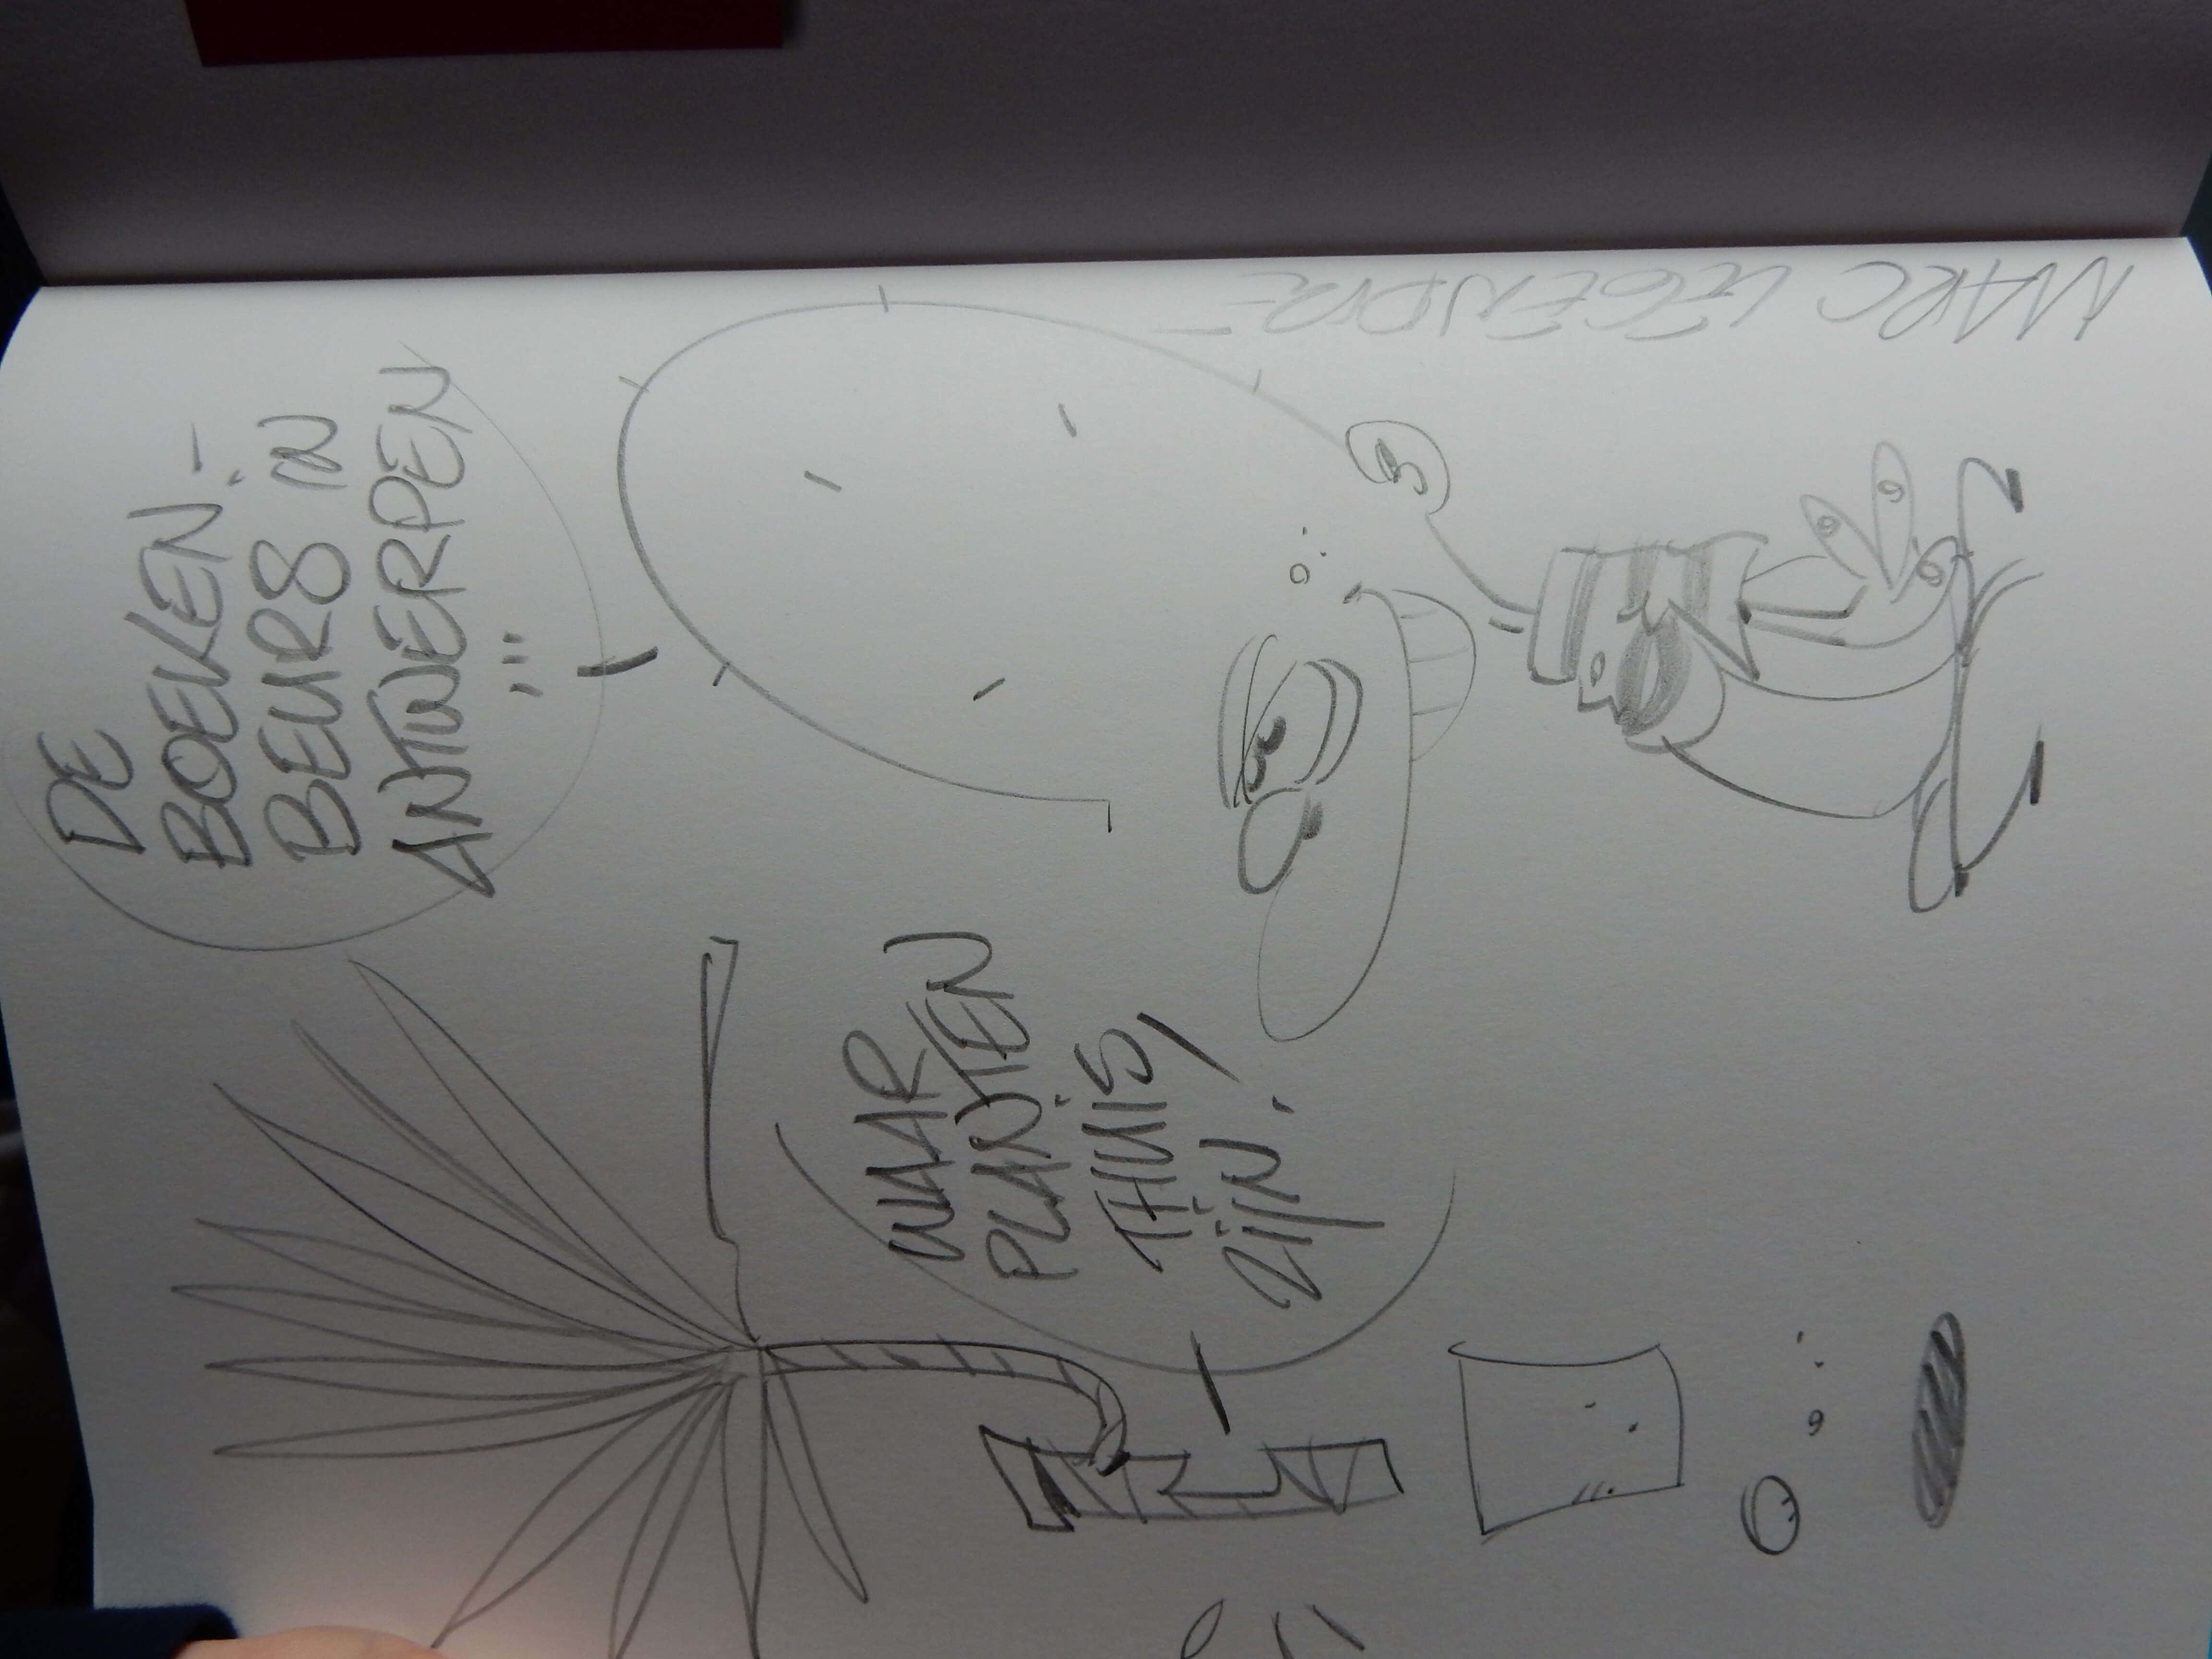 DE
BOEKEN-
BEURS IN
ANTWERPEN
...
WAAR
PLANTEN
THUIS
ZIJN!
MARC LEGENDRE